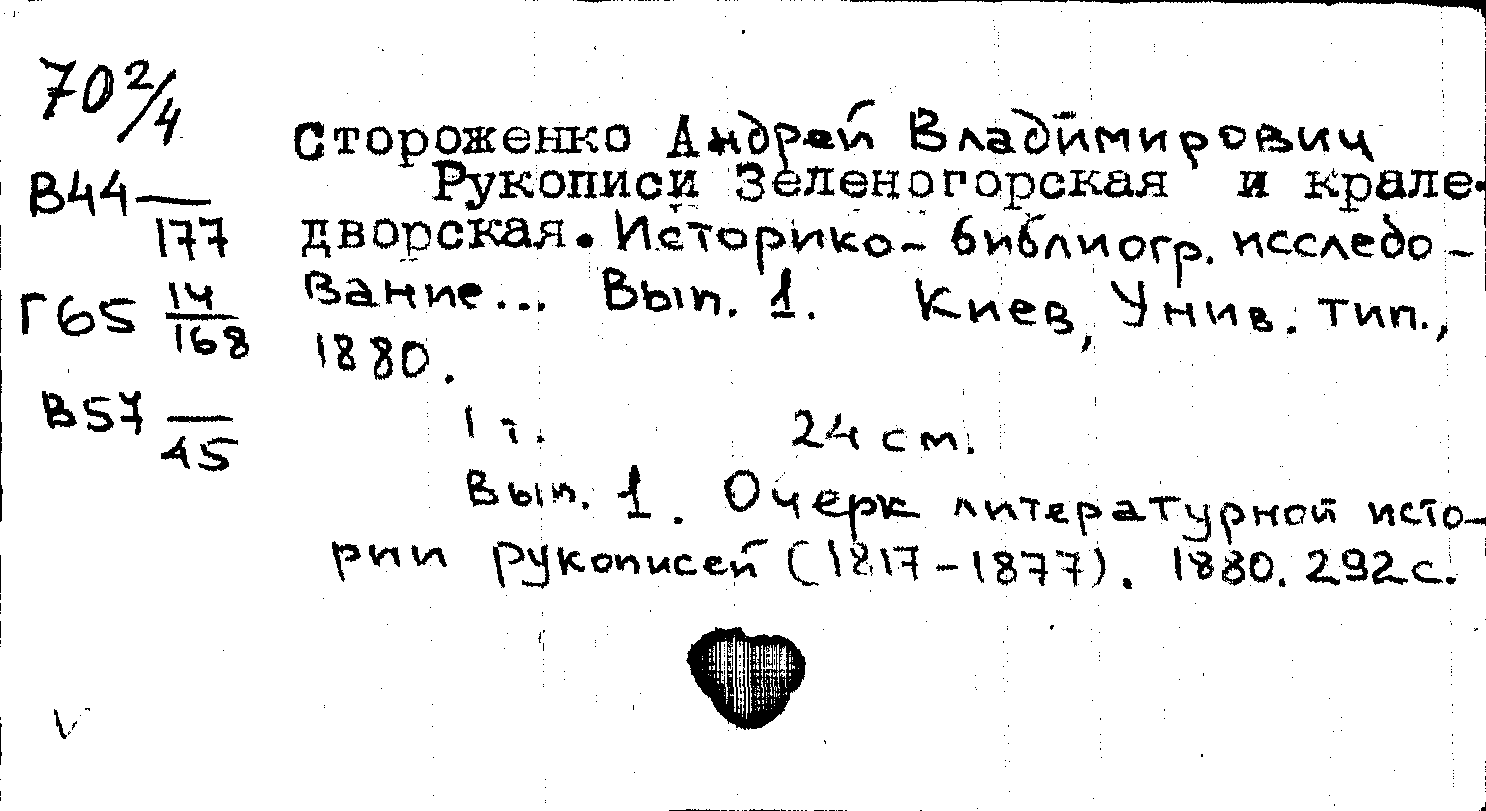 70 2/4
Стороженко Андрей Владимирович
В44 — 177
Рукописи Зеленогорская и крале-
дворская. Историко-библиогр. исследо-
Г65 14/168
вание... Вып. 1. Киев, Унив. тип.,
1880.
В57 — 45
1 т. 24 см.
Вып. 1. Очерк литературной исто-
рии рукописей (1817-1877). 1880. 292 с.